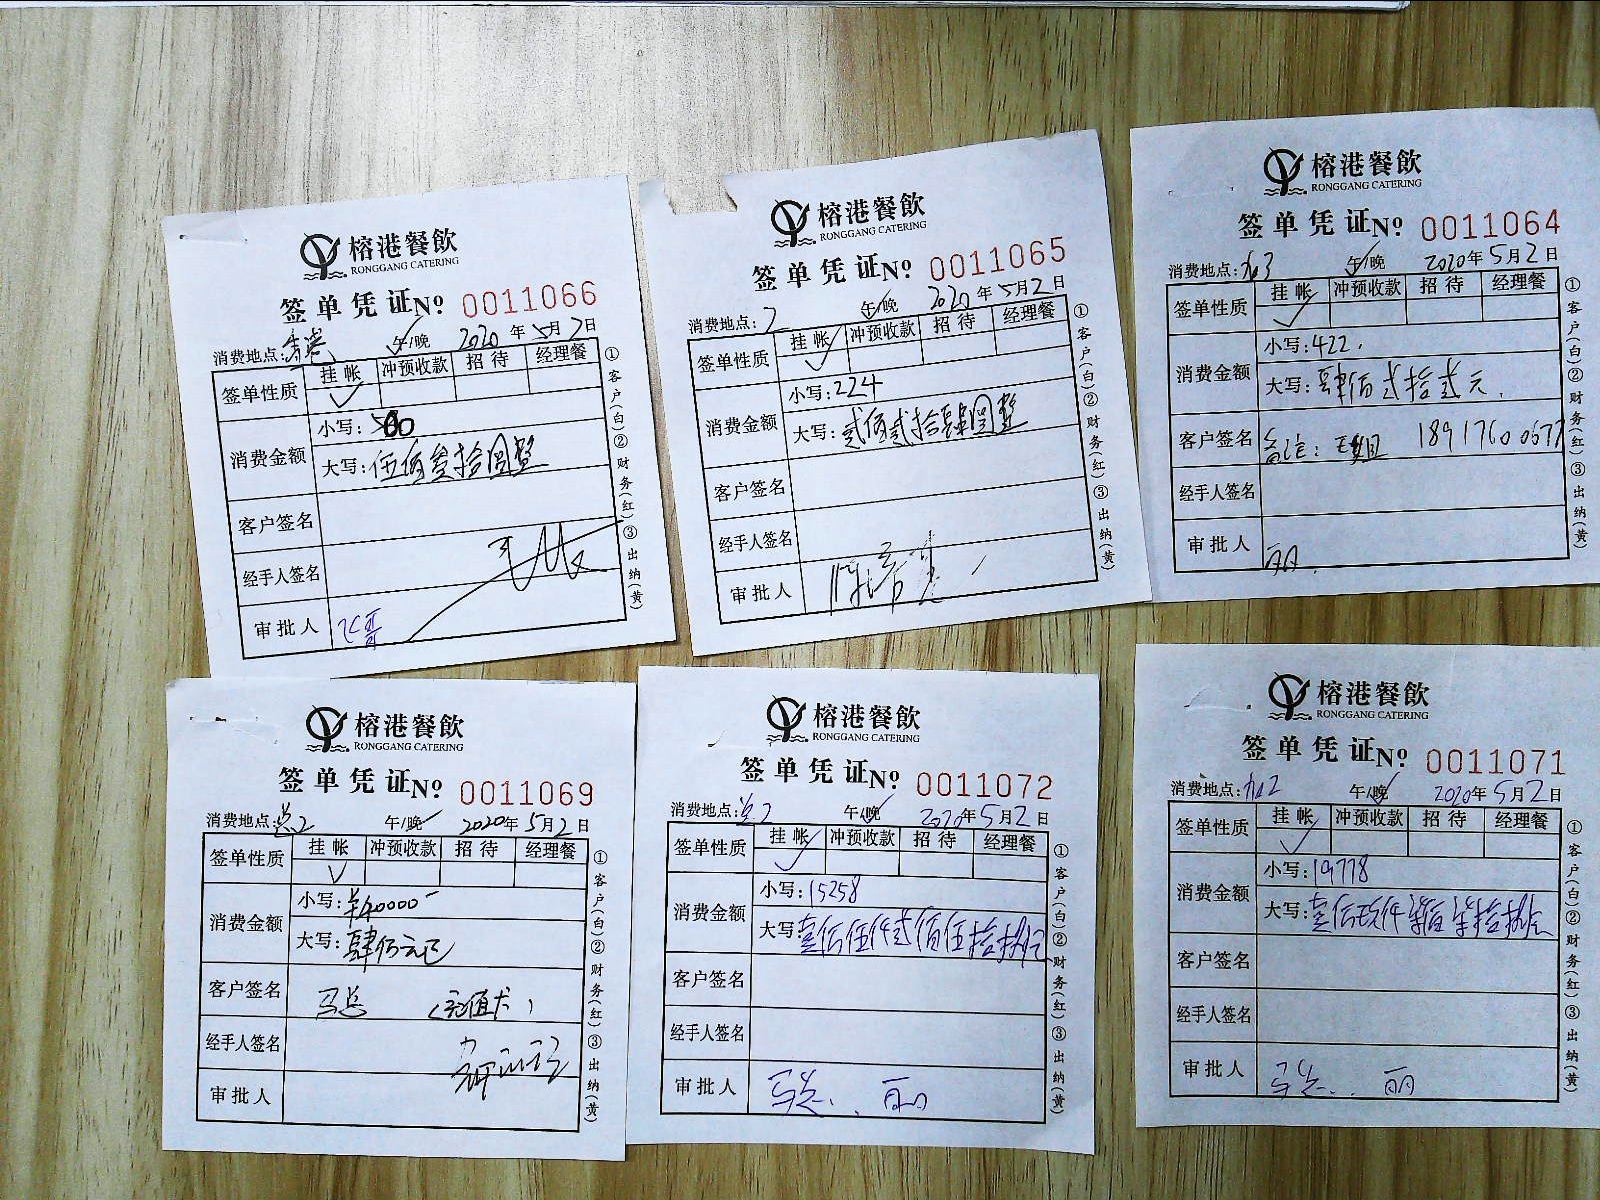 榕港餐飲
RONGGANG CATERING
签单凭证 No 0011066
消费地点: 午/晚 2020年5月2日
签单性质 挂帐 冲预收款 招待 经理餐
小写:
消费金额
大写:伍佰叁拾圆整
客户签名
经手人签名
审批人
①客户(白)②财务(红)③出纳(黄)
榕港餐飲
RONGGANG CATERING
签单凭证 No 0011065
消费地点:2 午/晚 2020年5月2日
签单性质 挂帐 冲预收款 招待 经理餐
小写:224
消费金额
大写:贰佰贰拾肆圆整
客户签名
经手人签名
审批人
①客户(白)②财务(红)③出纳(黄)
榕港餐飲
RONGGANG CATERING
签单凭证 No 0011064
消费地点: 午/晚 2020年5月2日
签单性质 挂帐 冲预收款 招待 经理餐
小写:422.
消费金额
大写:肆佰贰拾贰元.
客户签名 18917600677
经手人签名
审批人 丽
①客户(白)②财务(红)③出纳(黄)
榕港餐飲
RONGGANG CATERING
签单凭证 No 0011069
消费地点:总2 午/晚 2020年5月2日
签单性质 挂帐 冲预收款 招待 经理餐
小写:¥40000-
消费金额
大写:肆佰元正
客户签名 马总 (充值卡)
经手人签名
审批人
①客户(白)②财务(红)③出纳(黄)
榕港餐飲
RONGGANG CATERING
签单凭证 No 0011072
消费地点:总2 午/晚 2020年5月2日
签单性质 挂帐 冲预收款 招待 经理餐
小写:15258
消费金额
大写:壹万伍仟贰佰伍拾捌元
客户签名
经手人签名
审批人 丽
①客户(白)②财务(红)③出纳(黄)
榕港餐飲
RONGGANG CATERING
签单凭证 No 0011071
消费地点: 午/晚 2020年5月2日
签单性质 挂帐 冲预收款 招待 经理餐
小写:19778
消费金额
大写:壹万玖仟柒佰柒拾捌元
客户签名
经手人签名
审批人 丽
①客户(白)②财务(红)③出纳(黄)